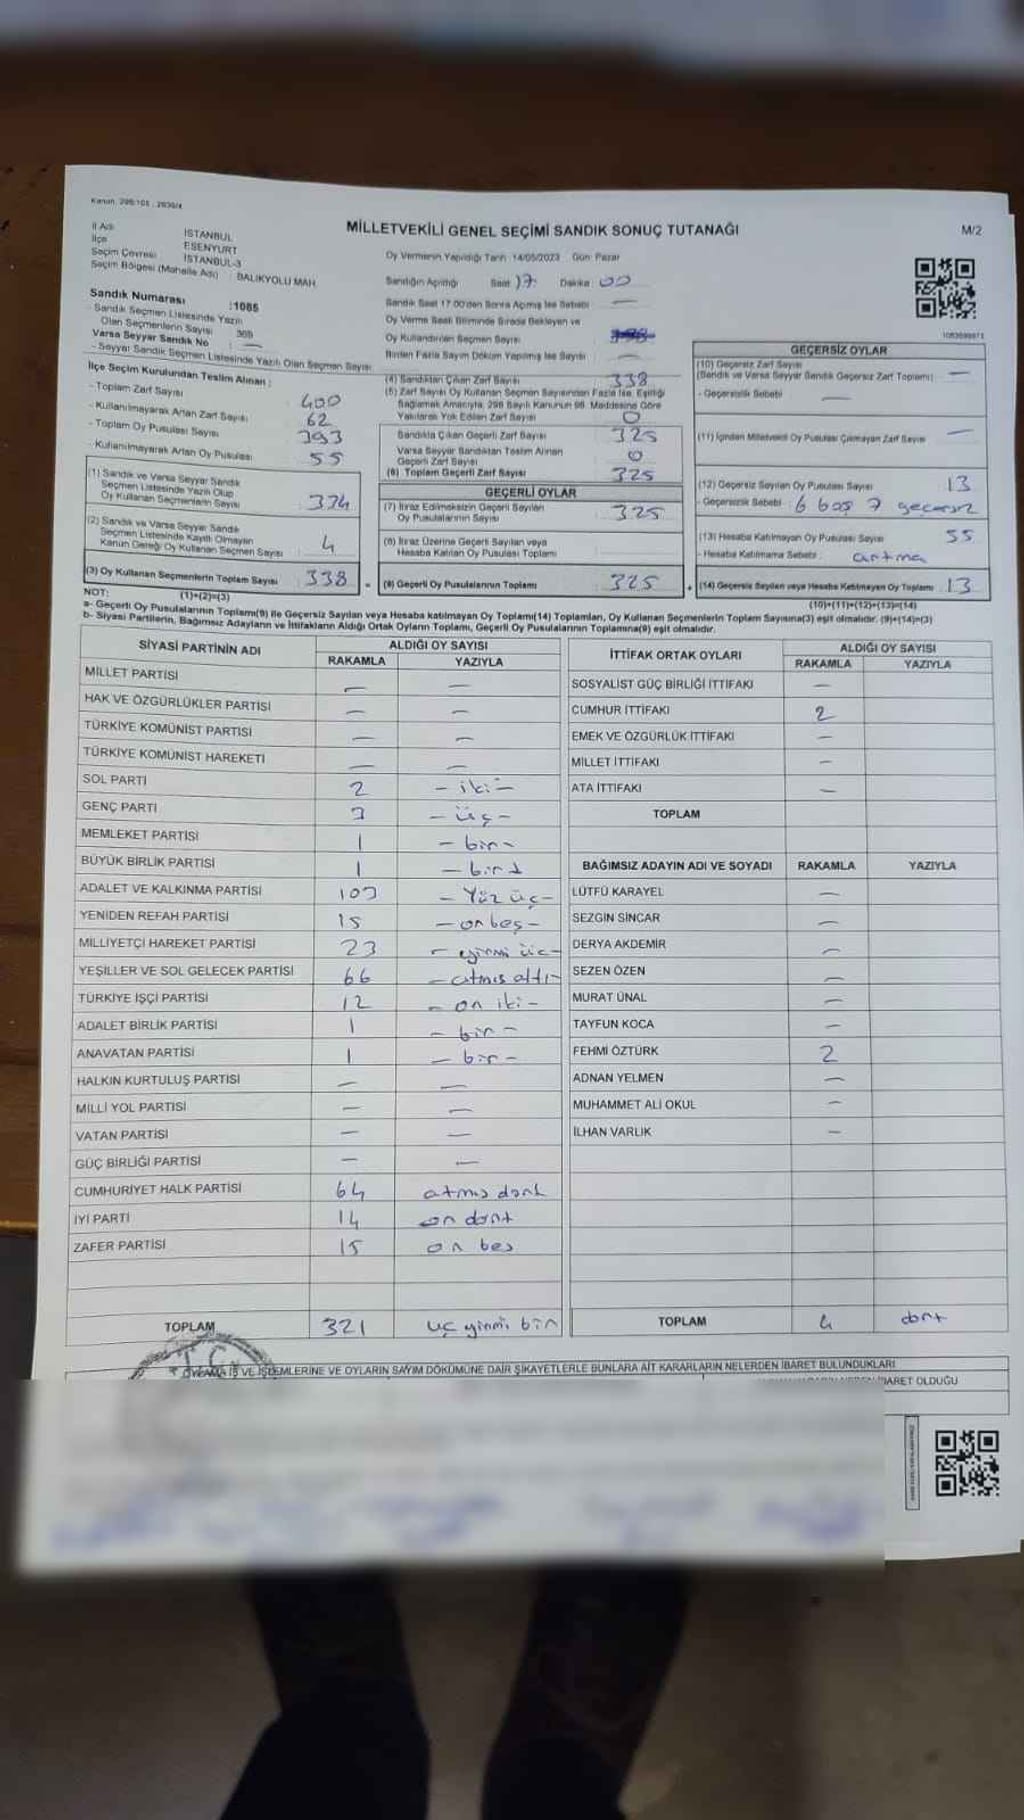 MİLLETVEKİLİ GENEL SEÇİMİ SANDIK SONUÇ TUTANAĞI
M/2
İl Adı İSTANBUL
İlçe ESENYURT
Seçim Çevresi İSTANBUL-3
Seçim Bölgesi (Mahalle Adı) : BALIKYOLU MAH.
Sandık Numarası :1085
- Sandık Seçmen Listesinde Yazılı
Olan Seçmenlerin Sayısı
Varsa Seyyar Sandık No : —
- Seyyar Sandık Seçmen Listesinde Yazılı Olan Seçmen Sayısı
İlçe Seçim Kurulundan Teslim Alınan :
- Toplam Zarf Sayısı 400
- Kullanılmayarak Artan Zarf Sayısı 62
- Toplam Oy Pusulası Sayısı 393
- Kullanılmayarak Artan Oy Pusulası 55
(1) Sandık ve Varsa Seyyar Sandık
Seçmen Listesinde Yazılı Olup
Oy Kullanan Seçmenlerin Sayısı 334
(2) Sandık ve Varsa Seyyar Sandık
Seçmen Listesinde Kayıtlı Olmayan
Kanun Gereği Oy Kullanan Seçmen Sayısı 4
(3) Oy Kullanan Seçmenlerin Toplam Sayısı 338
(1)+(2)=(3)
Oy Vermenin Yapıldığı Tarih 14/05/2023 Gün: Pazar
Sandığın Açıldığı Saat 17: Dakika 00
Sandık Saat 17.00'den Sonra Açılmış İse Sebebi —
Oy Verme Saati Bitiminde Sırada Bekleyen ve
Oy Kullandırılan Seçmen Sayısı
Birden Fazla Sayım Döküm Yapılmış İse Sayısı —
(4) Sandıktan Çıkan Zarf Sayısı 338
(5) Zarf Sayısı Oy Kullanan Seçmen Sayısından Fazla İse, Eşitliği
Sağlamak Amacıyla, 298 Sayılı Kanunun 98. Maddesine Göre
Yakılarak Yok Edilen Zarf Sayısı 0
Sandıkta Çıkan Geçerli Zarf Sayısı 325
Varsa Seyyar Sandıktan Teslim Alınan
Geçerli Zarf Sayısı 0
(6) Toplam Geçerli Zarf Sayısı 325
GEÇERLİ OYLAR
(7) İtiraz Edilmeksizin Geçerli Sayılan
Oy Pusulalarının Sayısı 325
(8) İtiraz Üzerine Geçerli Sayılan veya
Hesaba Katılan Oy Pusulası Toplamı
(9) Geçerli Oy Pusulalarının Toplamı 325
GEÇERSİZ OYLAR
(10) Geçersiz Zarf Sayısı
(Sandık ve Varsa Seyyar Sandık Geçersiz Zarf Toplamı) —
- Geçersizlik Sebebi —
(11) İçinden Milletvekili Oy Pusulası Çıkmayan Zarf Sayısı —
(12) Geçersiz Sayılan Oy Pusulası Sayısı 13
- Geçersizlik Sebebi 6 boş 7 geçersiz
(13) Hesaba Katılmayan Oy Pusulası Sayısı 55
- Hesaba Katılmama Sebebi artma
(14) Geçersiz Sayılan veya Hesaba Katılmayan Oy Toplamı 13
(10)+(11)+(12)+(13)=(14)
NOT:
a- Geçerli Oy Pusulalarının Toplamı(9) ile Geçersiz Sayılan veya Hesaba katılmayan Oy Toplamı(14) Toplamları, Oy Kullanan Seçmenlerin Toplam Sayısına(3) eşit olmalıdır. (9)+(14)=(3)
b- Siyasi Partilerin, Bağımsız Adayların ve İttifakların Aldığı Ortak Oyların Toplamı, Geçerli Oy Pusulalarının Toplamına(9) eşit olmalıdır.
SİYASİ PARTİNİN ADI ALDIĞI OY SAYISI
RAKAMLA YAZIYLA
MİLLET PARTİSİ — —
HAK VE ÖZGÜRLÜKLER PARTİSİ — —
TÜRKİYE KOMÜNİST PARTİSİ — —
TÜRKİYE KOMÜNİST HAREKETİ — —
SOL PARTİ 2 - iki -
GENÇ PARTİ 3 - üç -
MEMLEKET PARTİSİ 1 - bir -
BÜYÜK BİRLİK PARTİSİ 1 - bir -
ADALET VE KALKINMA PARTİSİ 103 - Yüz üç -
YENİDEN REFAH PARTİSİ 15 - on beş -
MİLLİYETÇİ HAREKET PARTİSİ 23 - yirmi üç -
YEŞİLLER VE SOL GELECEK PARTİSİ 66 - atmış altı -
TÜRKİYE İŞÇİ PARTİSİ 12 - on iki -
ADALET BİRLİK PARTİSİ 1 - bir -
ANAVATAN PARTİSİ 1 - bir -
HALKIN KURTULUŞ PARTİSİ — —
MİLLİ YOL PARTİSİ — —
VATAN PARTİSİ — —
GÜÇ BİRLİĞİ PARTİSİ — —
CUMHURİYET HALK PARTİSİ 64 atmış dört
İYİ PARTİ 14 on dört
ZAFER PARTİSİ 15 on beş
TOPLAM 321 üç yirmi bir
İTTİFAK ORTAK OYLARI ALDIĞI OY SAYISI
RAKAMLA YAZIYLA
SOSYALİST GÜÇ BİRLİĞİ İTTİFAKI —
CUMHUR İTTİFAKI 2
EMEK VE ÖZGÜRLÜK İTTİFAKI —
MİLLET İTTİFAKI —
ATA İTTİFAKI —
TOPLAM
BAĞIMSIZ ADAYIN ADI VE SOYADI RAKAMLA YAZIYLA
LÜTFÜ KARAYEL —
SEZGİN SİNCAR —
DERYA AKDEMİR —
SEZEN ÖZEN —
MURAT ÜNAL —
TAYFUN KOCA —
FEHMİ ÖZTÜRK 2
ADNAN YELMEN —
MUHAMMET ALİ OKUL —
İLHAN VARLIK —
TOPLAM 4 dört
İŞ VE İŞLEMLERİNE VE OYLARIN SAYIM DÖKÜMÜNE DAİR ŞİKAYETLERLE BUNLARA AİT KARARLARIN NELERDEN İBARET BULUNDUKLARI
OLDUĞU